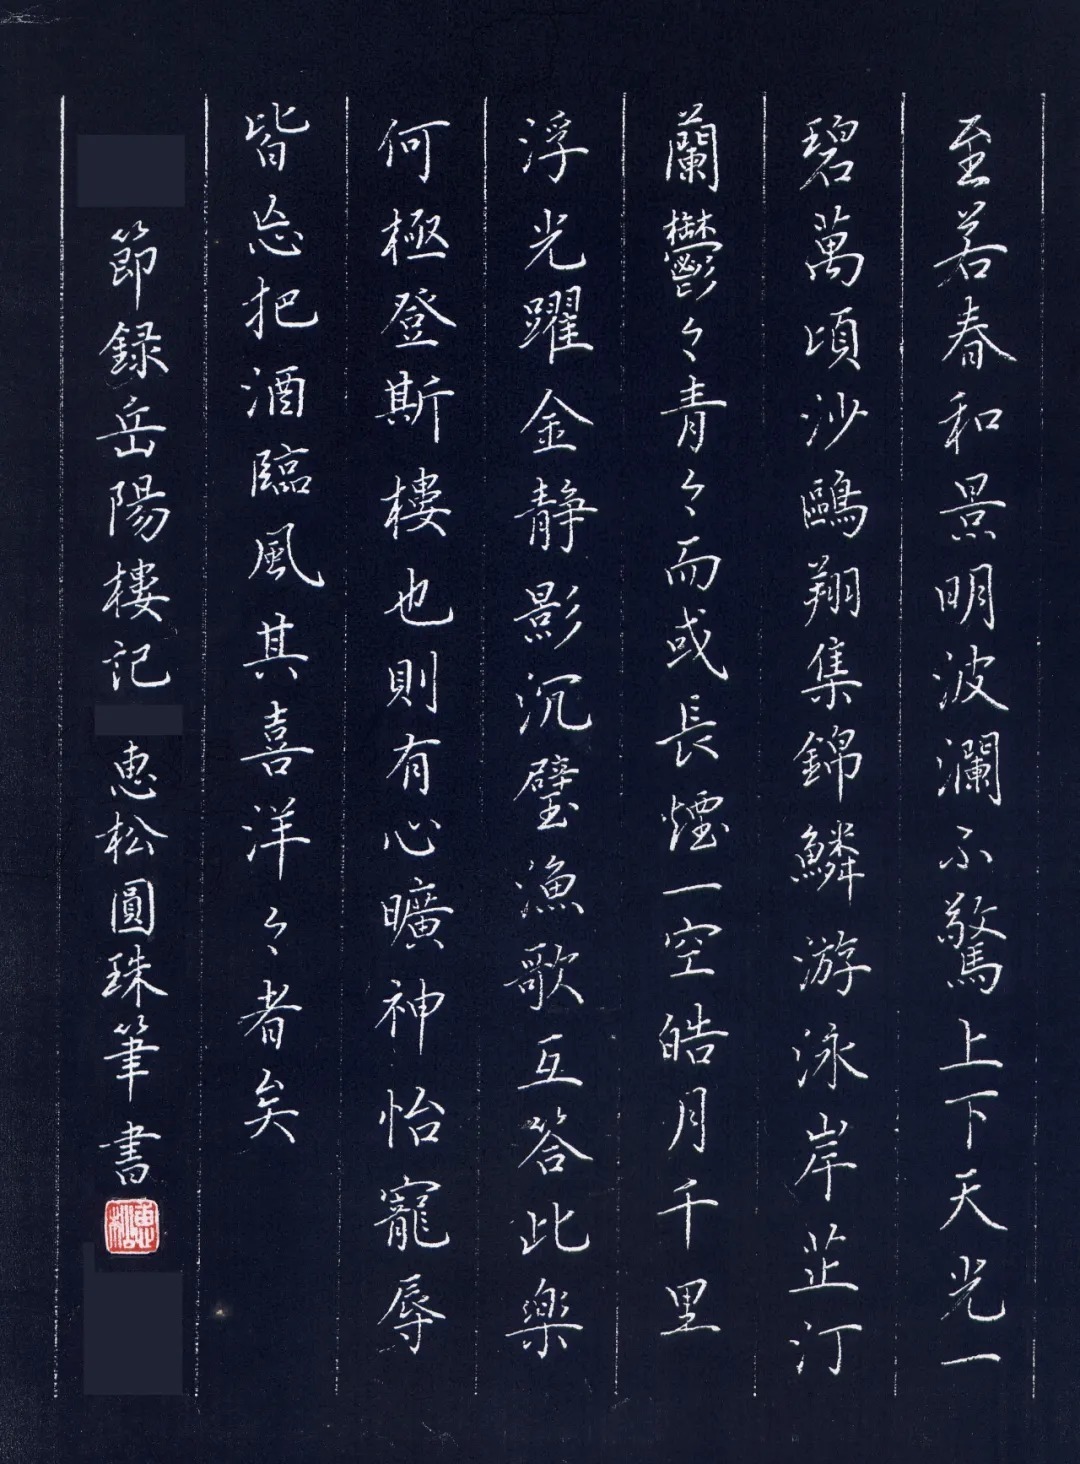 至若春和景明波瀾不驚上下天光一
碧萬頃沙鷗翔集錦鱗游泳岸芷汀
蘭鬱々青々而或長煙一空皓月千里
浮光躍金静影沉璧漁歌互答此樂
何極登斯樓也則有心曠神怡寵辱
皆忘把酒臨風其喜洋々者矣
節録岳陽樓記 惠松圓珠筆書
惠松